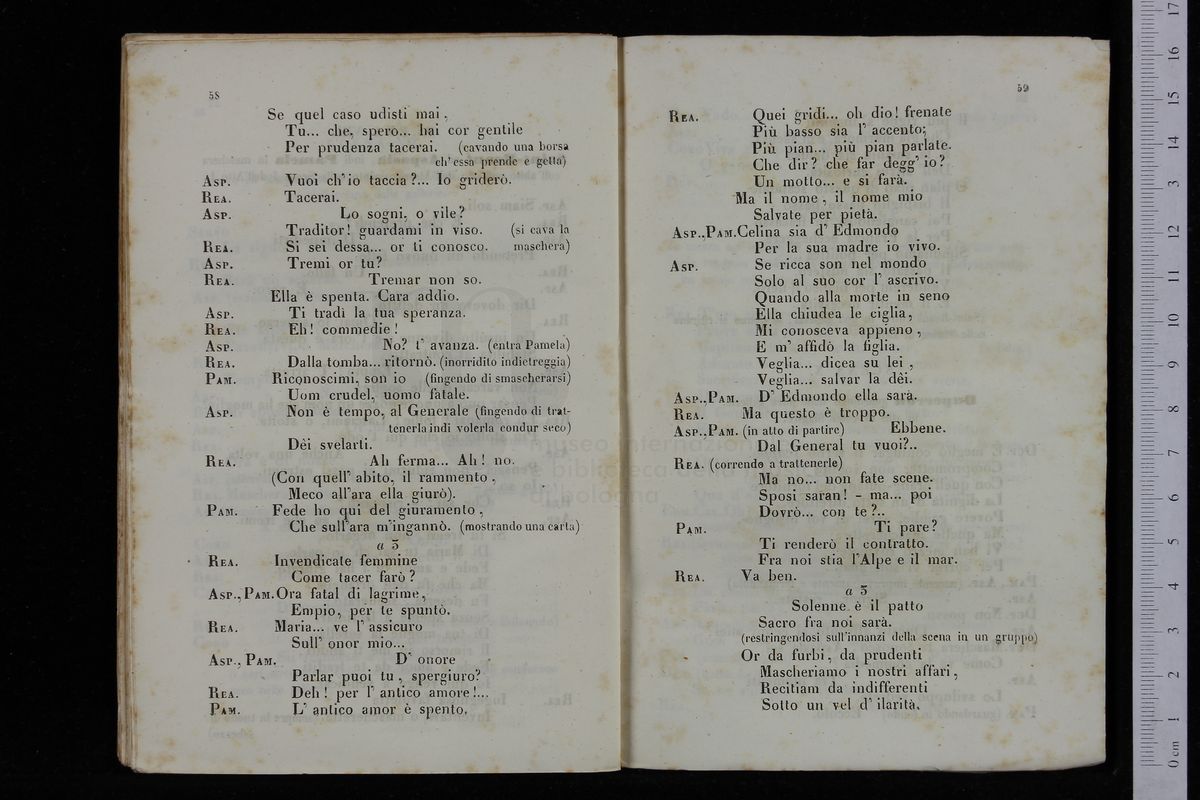 58
Se quel caso udisti mai.
Tu... che, spero... hai cor gentile
Per prudenza tacerai. (cavando una borsa
ch'essa prende e getta)
Asp. Vuoi ch'io taccia?... Io griderò.
Rea. Tacerai.
Asp. Lo sogni, o vile?
Traditor! guardami in viso. (si cava la
Rea. Si sei dessa... or ti conosco. maschera)
Asp. Tremi or tu?
Rea. Tremar non so.
Ella è spenta. Cara addio.
Asp. Ti tradì la tua speranza.
Rea. Eh! commedie!
Asp. No? t' avanza. (entra Pamela)
Rea. Dalla tomba... ritornò. (inorridito indietreggia)
Pam. Riconoscimi, son io (fingendo di smascherarsi)
Uom crudel, uomo fatale.
Asp. Non è tempo, al Generale (fingendo di trat-
tenerla indi volerla condur seco)
Dèi svelarti.
Rea. Ah ferma... Ah! no.
(Con quell' abito, il rammento,
Meco all'ara ella giurò).
Pam. Fede ho qui del giuramento,
Che sull'ara m'ingannò. (mostrando una carta)
a 3
Rea. Invendicate femmine
Come tacer farò?
Asp., Pam. Ora fatal di lagrime,
Empio, per te spuntò.
Rea. Maria... ve l' assicuro
Sull' onor mio...
Asp., Pam. D' onore
Parlar puoi tu, spergiuro?
Rea. Deh! per l' antico amore!...
Pam. L' antico amor è spento.
59
Rea. Quei gridi... oh dio! frenate
Più basso sia l' accento;
Più pian... più pian parlate.
Che dir? che far degg' io?
Un motto... e si farà.
Ma il nome, il nome mio
Salvate per pietà.
Asp., Pam. Celina sia d' Edmondo
Per la sua madre io vivo.
Asp. Se ricca son nel mondo
Solo al suo cor l' ascrivo.
Quando alla morte in seno
Ella chiudea le ciglia,
Mi conosceva appieno,
E m' affidò la figlia.
Veglia... dicea su lei,
Veglia... salvar la dèi.
Asp., Pam. D' Edmondo ella sarà.
Rea. Ma questo è troppo.
Asp., Pam. (in atto di partire) Ebbene.
Dal General tu vuoi?..
Rea. (correndo a trattenerle)
Ma no... non fate scene.
Sposi saran! - ma... poi
Dovrò... con te?..
Pam. Ti pare?
Ti renderò il contratto.
Fra noi stia l'Alpe e il mar.
Rea. Va ben.
a 3
Solenne è il patto
Sacro fra noi sarà.
(restringendosi sull'innanzi della scena in un gruppo)
Or da furbi, da prudenti
Mascheriamo i nostri affari,
Recitiam da indifferenti
Sotto un vel d' ilarità.
museo internazionale
e biblioteca
di bologna
0 cm 1 2 3 4 5 6 7 8 9 10 11 12 13 14 15 16 17